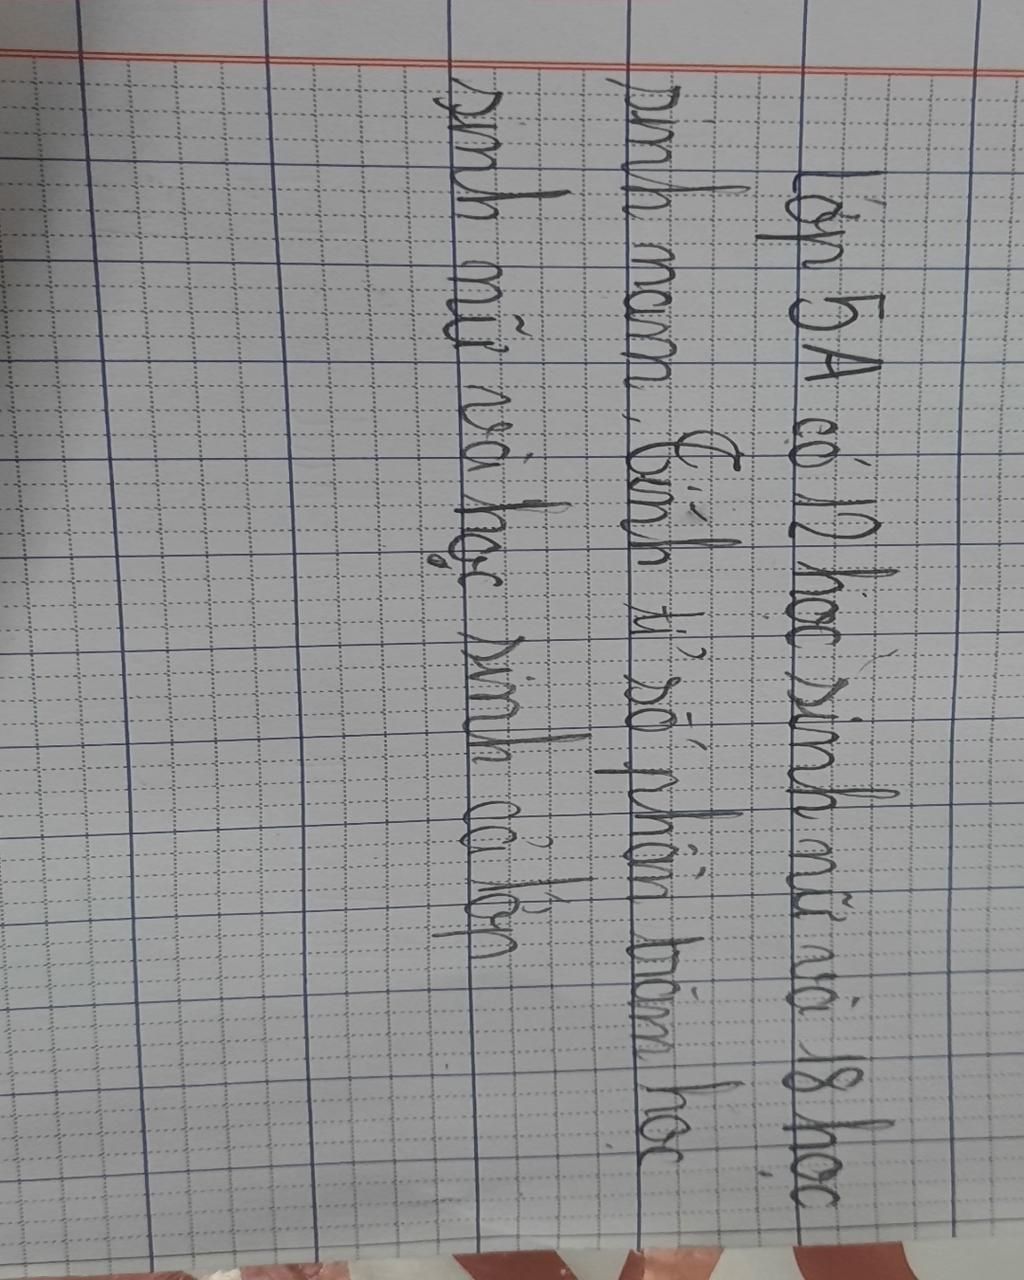 Lớp 5A có 12 học sinh nữ và 18 học
sinh nam. Tính tỉ số phần trăm học
sinh nữ và học sinh cả lớp